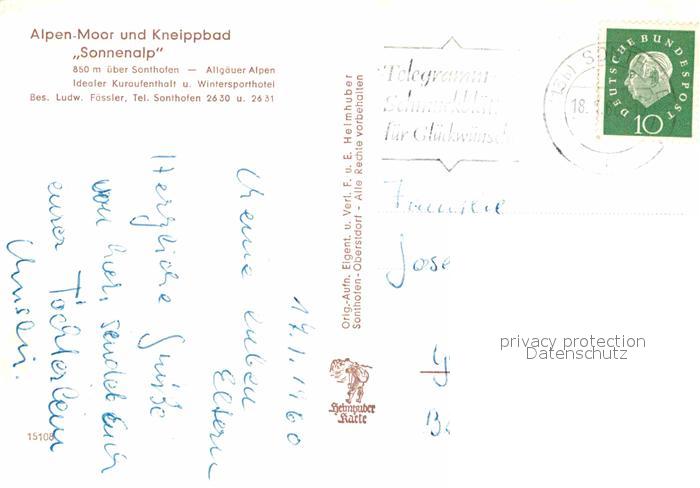 Alpen-Moor und Kneippbad
„Sonnenalp"
850 m über Sonthofen — Allgäuer Alpen
Idealer Kuraufenthalt u. Wintersporthotel
Bes. Ludw. Fässler, Tel. Sonthofen 2630 u. 2631
17.1.1960
Meine lieben
Eltern
Herzliche Grüße
von hier sendet Euch
eurer Töchterlein
15108
Orig.-Aufn. Eigent. u. Verl. F. u. E. Heimhuber
Sonthofen-Oberstdorf - Alle Rechte vorbehalten
Heimhuber
Karte
Telegramm
Schmuckblatt
für Glückwünsch
18.
DEUTSCHE BUNDESPOST
10
Familie
Jose
privacy protection
Datenschutz